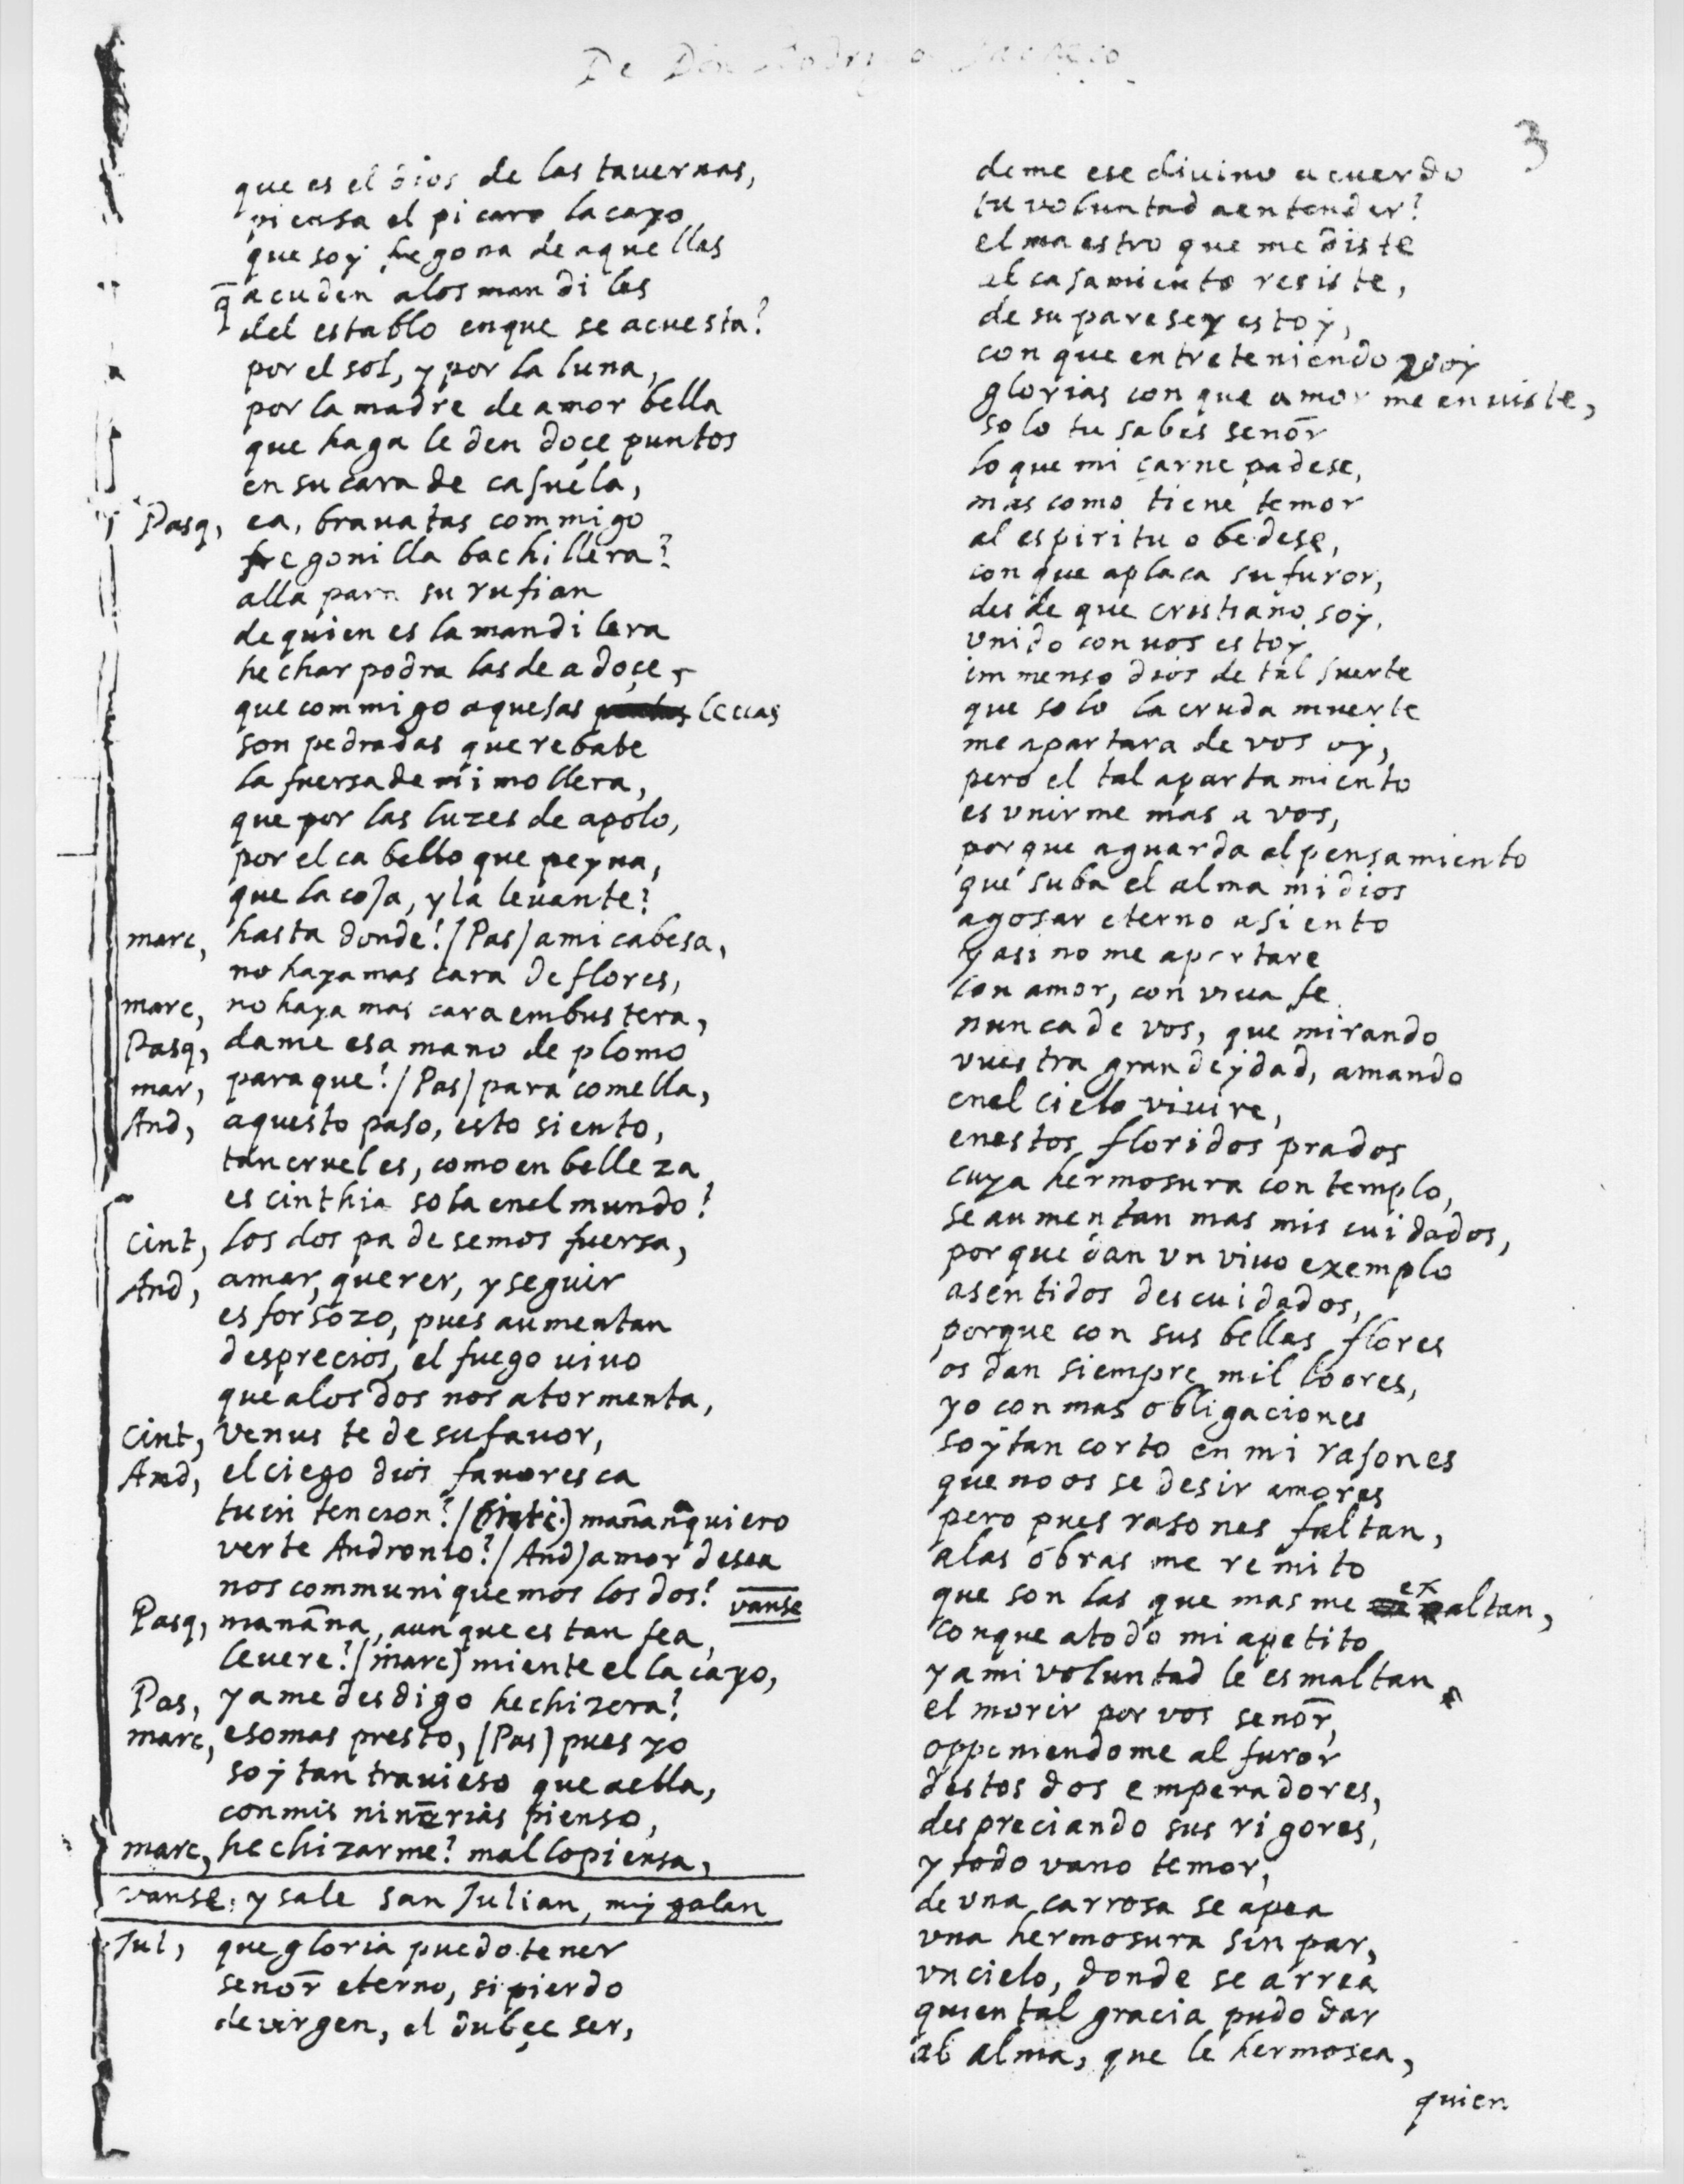 De Don
3
que es el dios de las tauernas,
piensa el picaro lacayo
que soy fregona de aquellas
q̄ acuden alos mandiles
del establo enque se acuesta?
por el sol, y por la luna,
por la madre de amor bella
que haga le den doçe puntos
en su cara de casuela,
Pasq, ea, brauatas commigo
fregonilla bachillera?
alla para su rufian
de quien es la mandilera
hechar podra las de a doçe,
que commigo aquesas leuas
son pedradas que rebate
la fuersa de mi mollera,
que por las luzes de apolo,
por el cabello que peyna,
que la coja, y la leuante?
marc, hasta donde? (Pas) a mi cabesa,
no haya mas cara de flores,
marc, no haya mas cara embustera,
Pasq, dame esa mano de plomo
mar, para que? (Pas) para comella,
And, aquesto paso, esto siento,
tan cruel es, como en belleza
es cinthia sola enel mundo?
Cint, los dos padesemos fuersa,
And, amar, querer, y seguir
es forsozo, pues aumentan
desprecios, el fuego uiuo
que alos dos nos atormenta,
Cint, venus te de su fauor,
And, el ciego dios fauoresca
tu intencion? (Cint) mañana quiero
verte Andronio? (And) amor desea
nos communiquemos los dos? vanse
Pasq, manāna, aunque es tan fea,
leuere? (marc) miente el lacayo,
Pas, ya me desdigo hechizera?
marc, eso mas presto, (Pas) pues yo
soy tan trauieso que a ella,
con mis ninērias pienso,
marc, hechizarme? mal lo piensa,
vanse: y sale san Julian, muy galan
Jul, que gloria puedo tener
senōr eterno, si pierdo
de virgen, el dulçe ser,
deme ese diuino acuerdo
tu voluntad a entender?
el maestro que me diste
el casamiento resiste,
de su pareser estoy,
con que entreteniendo voy
glorias con que amor me enuiste,
solo tu sabes senōr
lo que mi carne padese,
mas como tiene temor
al espiritu obedese,
con que aplaca su furor,
desde que cristiano soy,
vnido con uos estoy
immenso dios de tal suerte
que solo la cruda muerte
me apartara de vos oy,
pero el tal apartamiento
es vnirme mas a vos,
porque aguarda al pensamiento
que suba el alma mi dios
a gosar eterno asiento
y asi no me apartare
con amor, con viua fe
nunca de vos, que mirando
vuestra gran deydad, amando
enel cielo viuire,
enestos floridos prados
cuya hermosura contemplo,
se aumentan mas mis cuidados,
porque dan vn viuo exemplo
a sentidos descuidados,
porque con sus bellas flores
os dan siempre mil loores,
yo con mas obligaciones
soy tan corto en mi rasones
que no os se desir amores
pero pues rasones faltan,
alas obras me remito
que son las que mas me exaltan,
con que a todo mi apetito
y a mi voluntad le esmaltan
el morir por vos senōr,
opponiendome al furor
destos dos emperadores,
despreciando sus rigores,
y todo vano temor,
de vna carrosa se apea
vna hermosura sin par,
vn cielo, donde se arrea
quien tal gracia pudo dar
al alma, que le hermosea,
quien